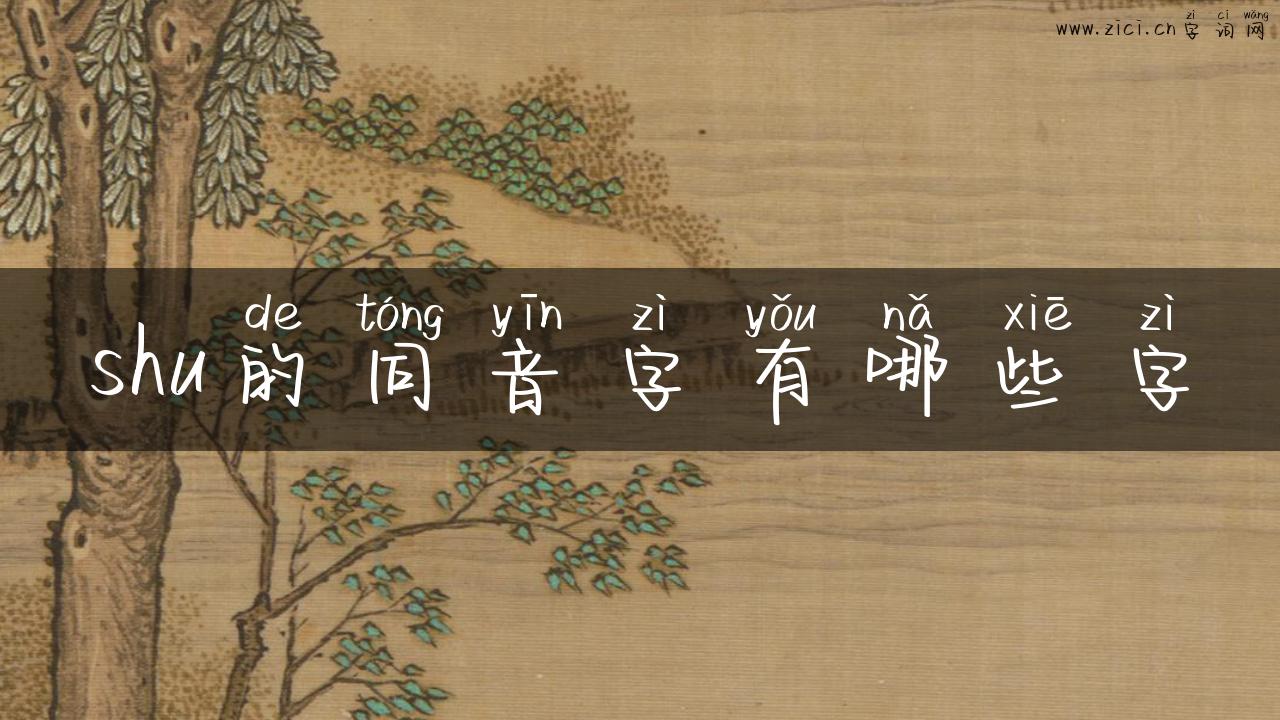 zì cí wǎng
www.zici.cn 字词网
de tóng yīn zì yǒu nǎ xiē zì
shu的同音字有哪些字